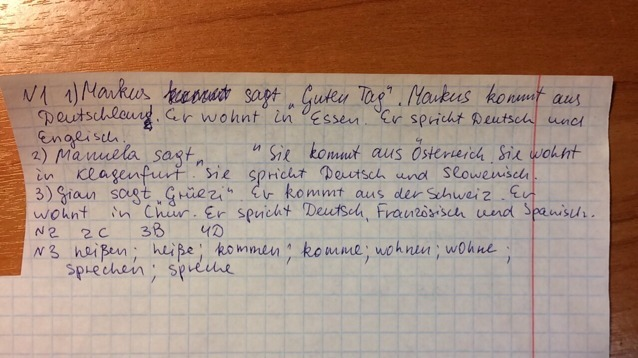 N1 1) Markus sagt „Guten Tag“. Markus kommt aus
Deutschland. Er wohnt in Essen. Er spricht Deutsch und
Englisch.
2) Manuela sagt „ “ Sie kommt aus Österreich. Sie wohnt
in Klagenfurt. Sie spricht Deutsch und Slowenisch.
3) Gian sagt „Grüezi“ Er kommt aus der Schweiz. Er
wohnt in Chur. Er spricht Deutsch, Französisch und Spanisch.
N2 2C 3B 4D
N3 heißen; heiße; kommen; komme; wohnen; wohne;
sprechen; spreche